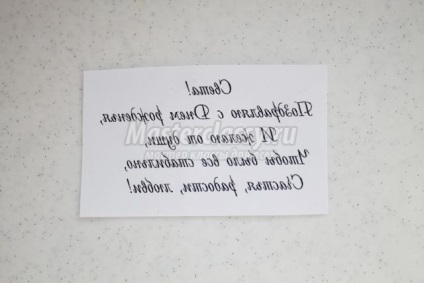 Света!
Поздравляю с Днем рожденья,
И желаю от души,
Чтобы было все стабильно,
Счастья, радости, любви!
Masterclassy.ru